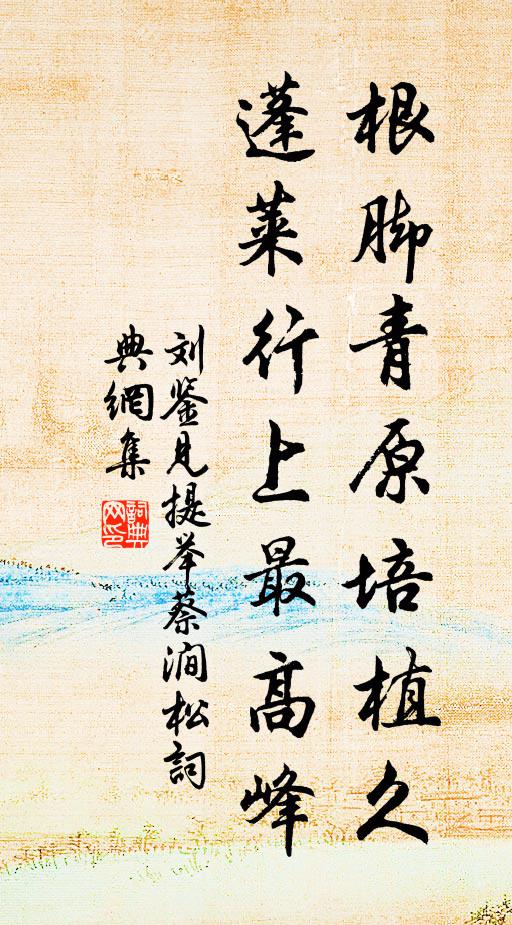 根脚青原培植久
蓬莱行上最高峰
刘鉴见提举蔡涧松詞
典網集
詞典
网印